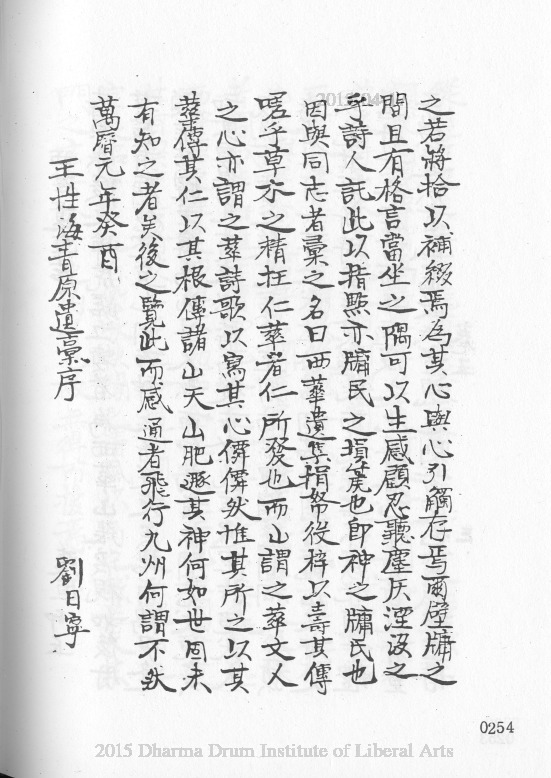 之若將拾以補綴焉為其心與心引觸存焉爾壁牖之
間且有格言當坐之隅可以生感顧忍聽塵仄湮沒之
乎詩人託此以指點亦牖民之塤篪也即神之牖民也
因與同志者彙之名曰西華遺集捐帑役梓以壽其傳
嗟乎草木之精在仁華者仁所發也而山謂之華文人
之心亦謂之華詩歌以寫其心儕儕然惟其所之以其
華傳其仁以其根傳諸山天山肥遯其神何如世固未
有知之者矣後之覽此而感通者飛行九州何謂不然
萬曆元年癸酉
王性海青原遺稾序
劉日寧
0254
2015 Dharma Drum Institute of Liberal Arts